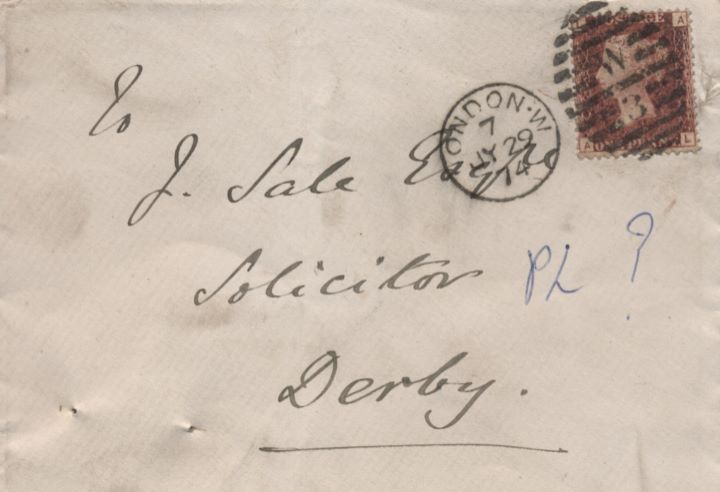 POSTAGE
L A
W
3
A L
ONE PENNY
LONDON·W
7
JY 29
74
To
J. Sale Esqre
Solicitor PL ?
Derby.